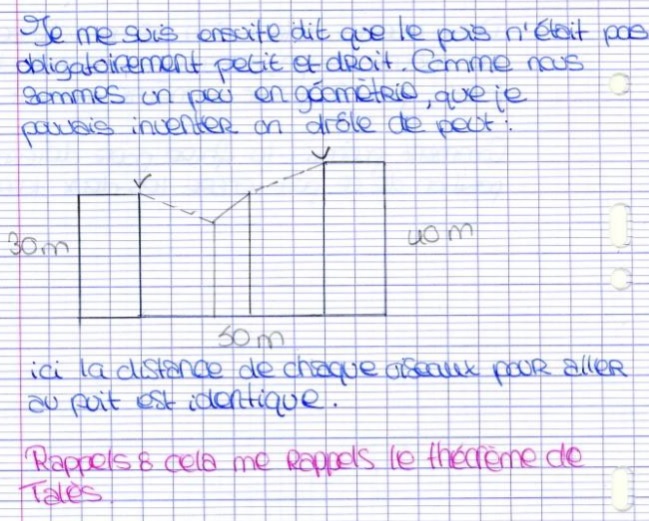 Je me suis ensuite dit que le puis n'était pas
obligatoirement petit et droit. Comme nous
sommes un peu en géométrie, que je
pouvais inventer un drôle de peut :
30m
40 m
50 m
ici la distance de chaque oiseaux pour aller
au puit est identique.
Rappels : cela me rappels le théorème de
Talès.